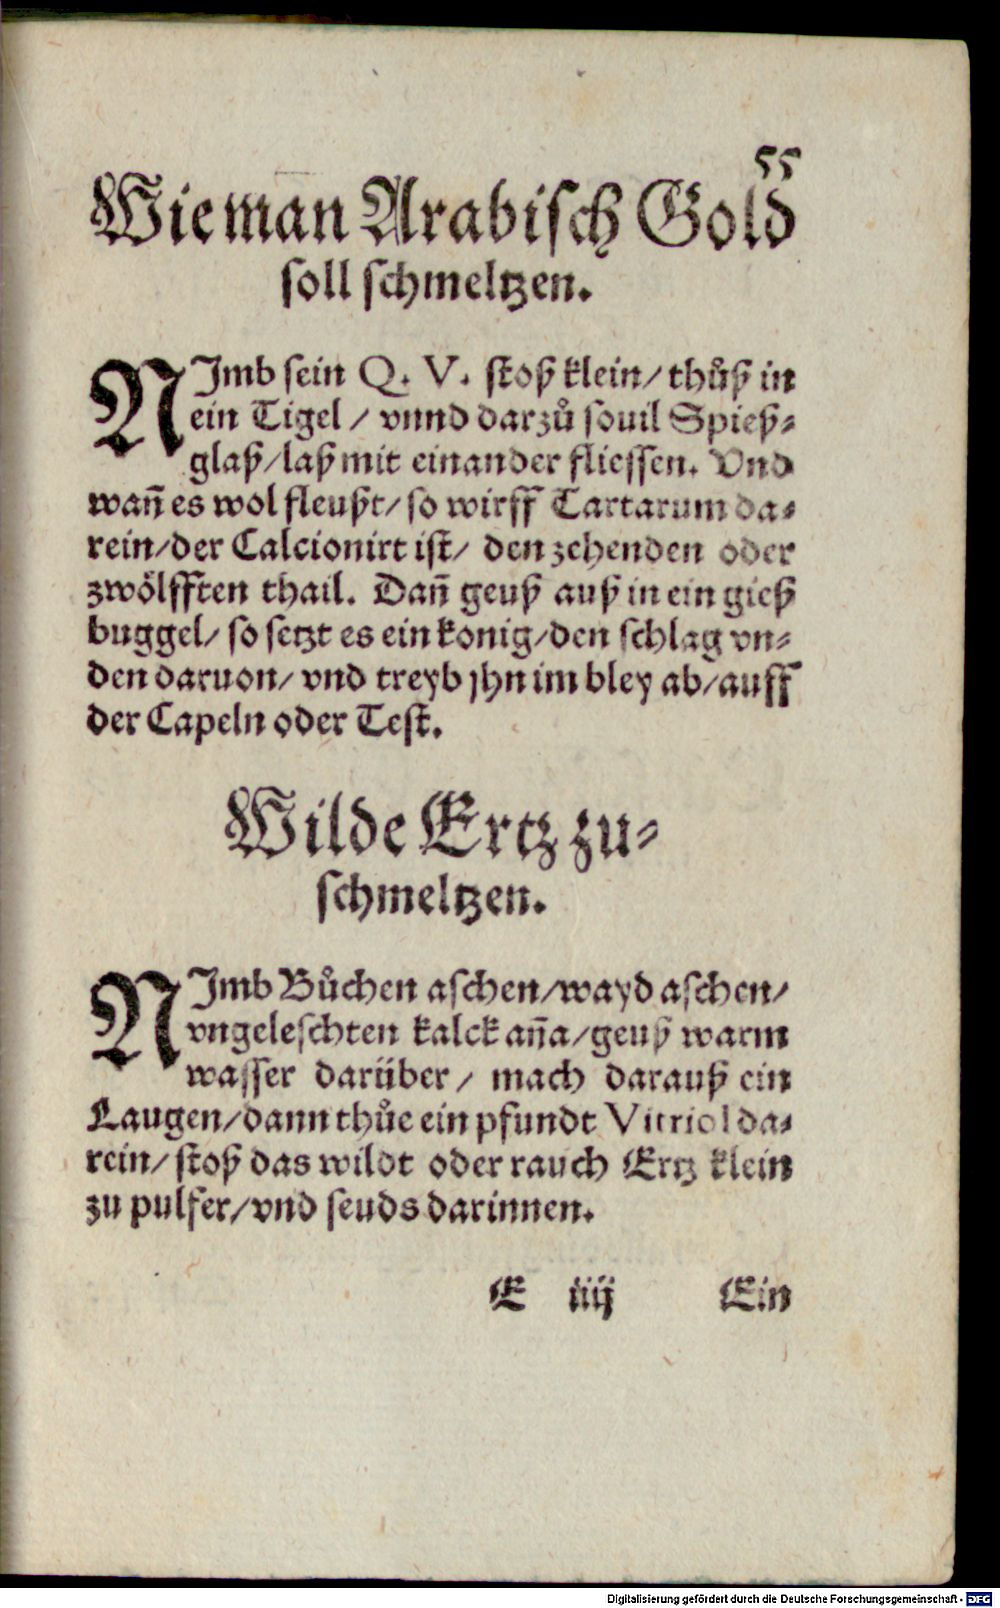 55
Wie man Arabisch Gold
soll schmeltzen.
NImb sein Q. V. stoß klein/ thůß in
ein Tigel / vnnd darzů souil Spieß-
glaß/ laß mit einander fliessen. Vnd
wañ es wol fleußt/ so wirff Tartarum da-
rein/ der Calcionirt ist/ den zehenden oder
zwölfften thail. Dañ geuß auß in ein gieß
buggel/ so setzt es ein konig/ den schlag vn-
den daruon/ vnd treyb jhn im bley ab/ auff
der Capeln oder Test.
Wilde Ertz zu-
schmeltzen.
NImb Bůchen aschen/ wayd aschen/
vngeleschten kalck aña/ geuß warm
wasser darüber / mach darauß ein
Laugen/ dann thůe ein pfundt Vitriol da-
rein/ stoß das wildt oder rauch Ertz klein
zu pulfer/ vnd seuds darinnen.
E iiij Ein
Digitalisierung gefördert durch die Deutsche Forschungsgemeinschaft - DFG